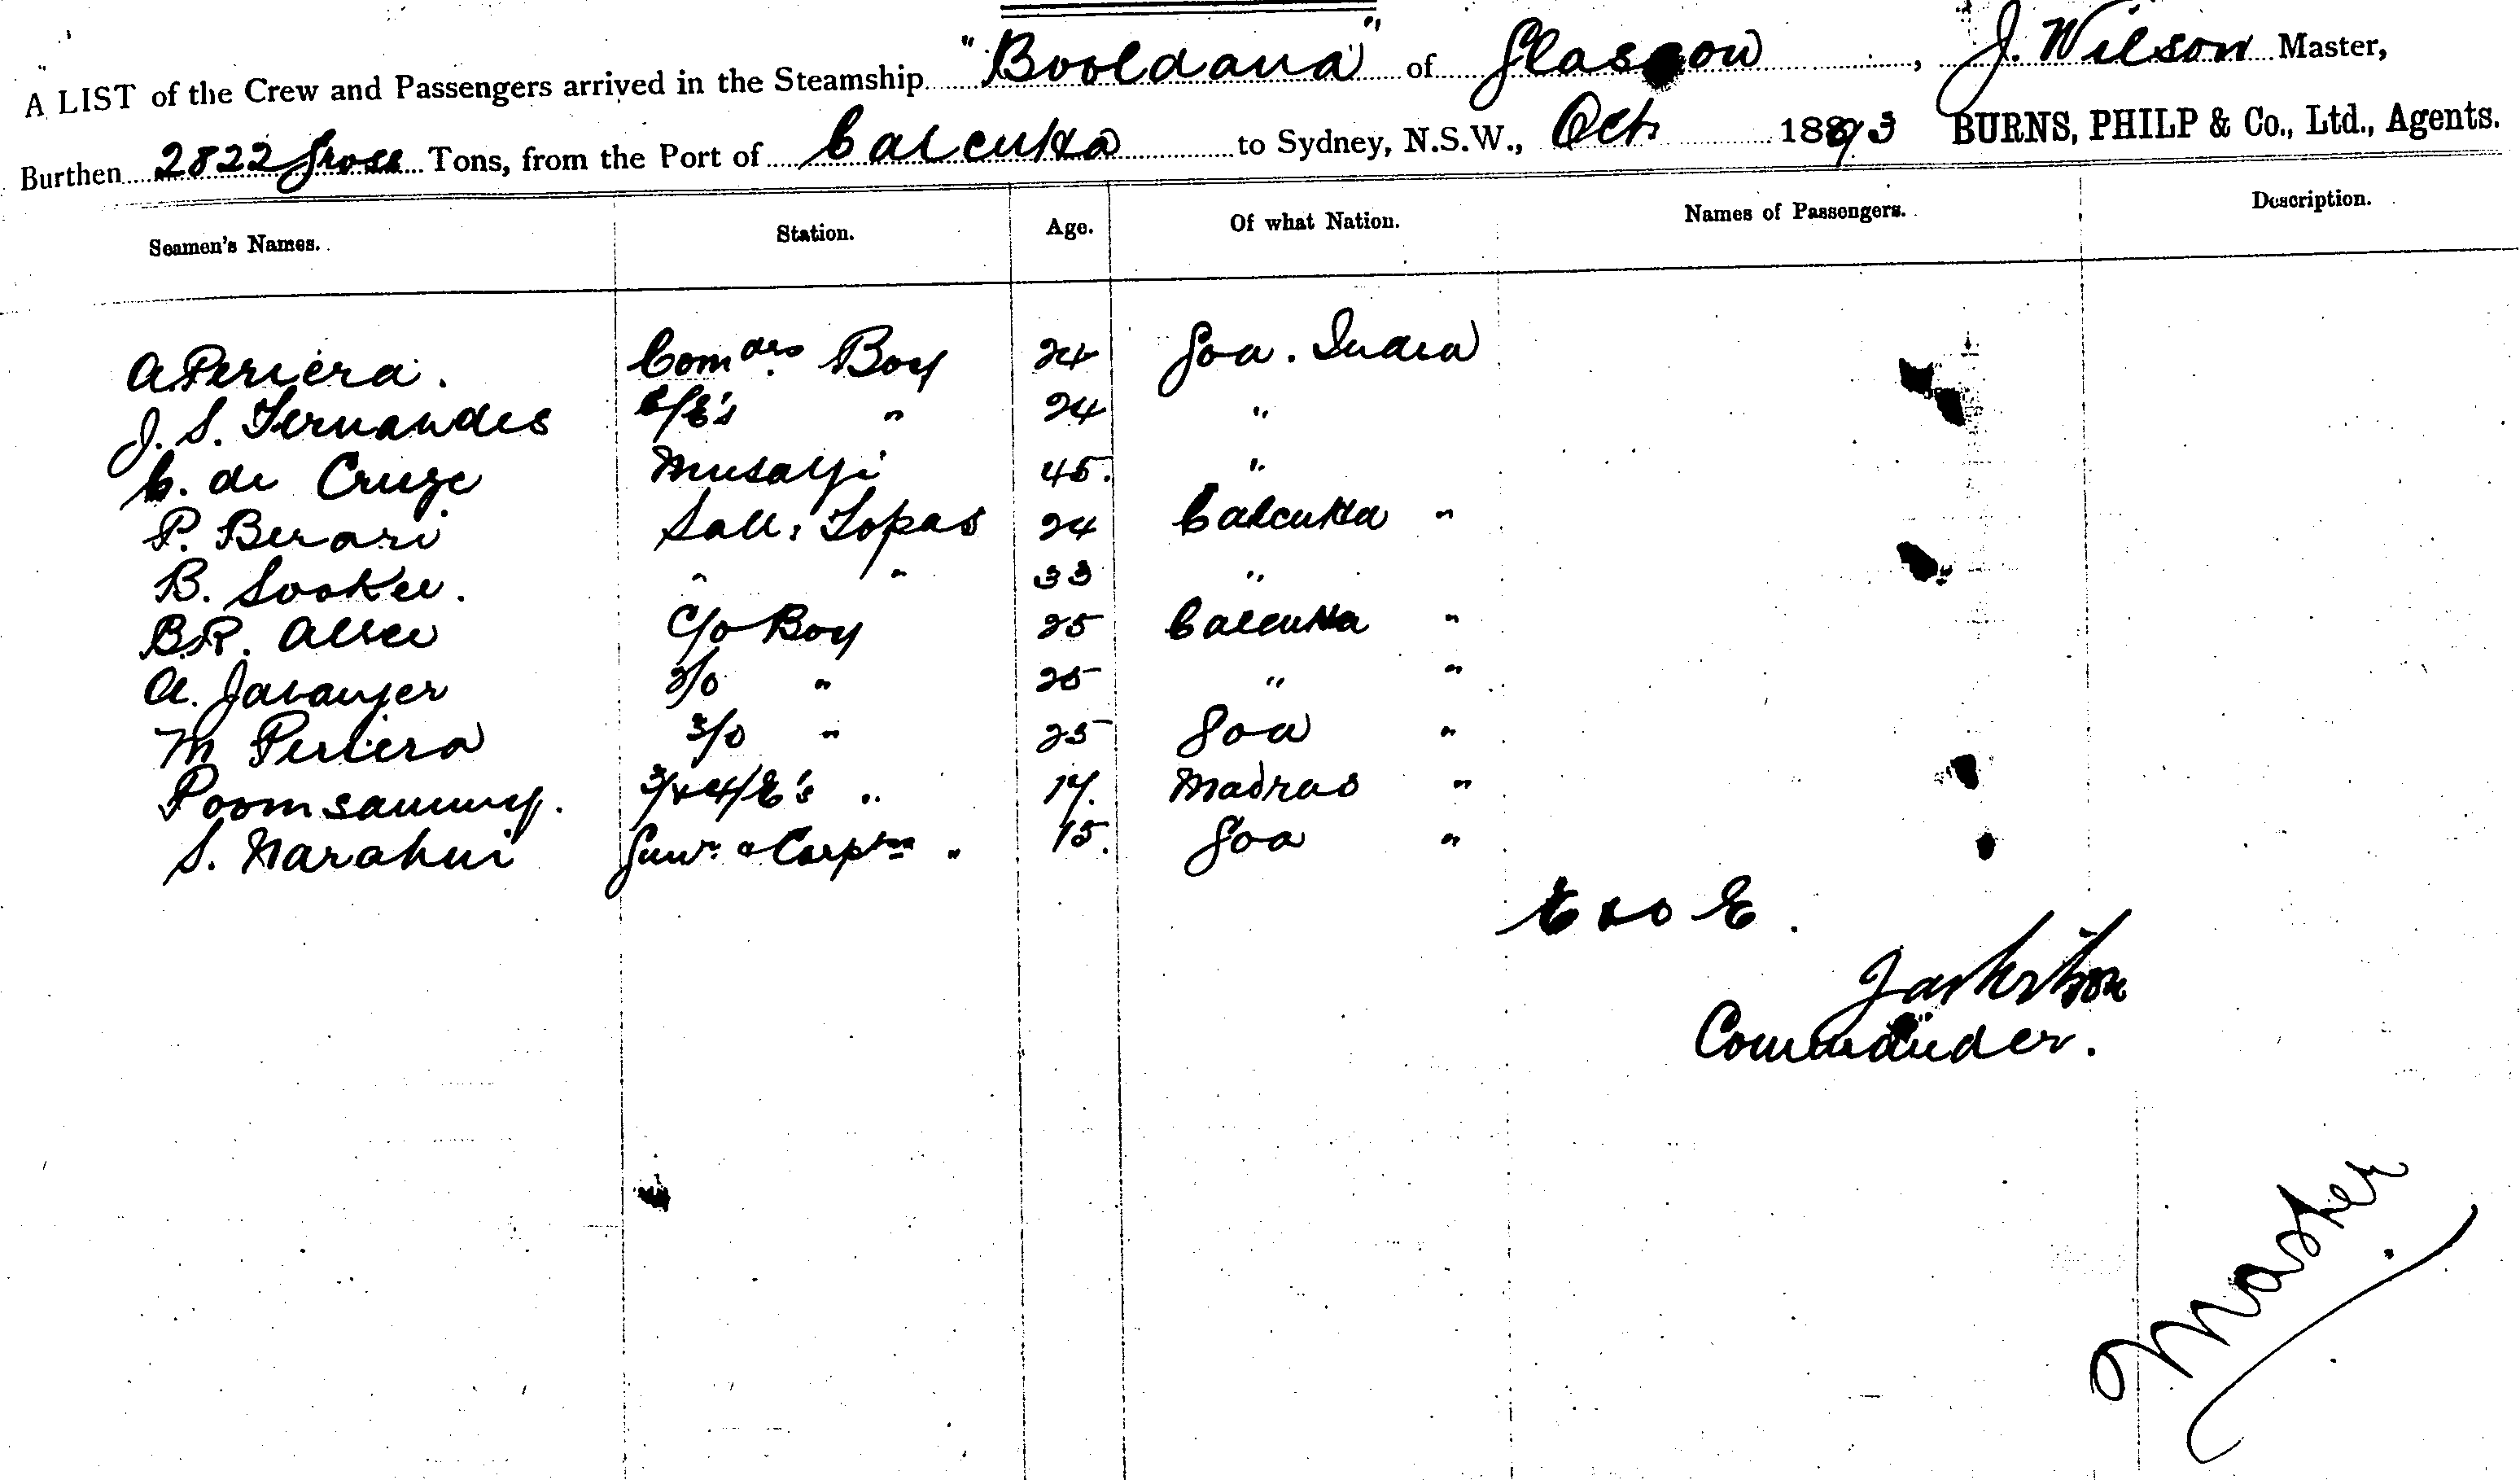 A LIST of the Crew and Passengers arrived in the Steamship "Booldana" of Glasgow, J. Wilson Master,
Burthen 2822 gross Tons, from the Port of Calcutta to Sydney, N.S.W., Oct 1893 BURNS, PHILP & Co., Ltd., Agents.
Seamen's Names. Station. Age. Of what Nation. Names of Passengers. Description.
A Periera. Com drs Boy 24 Goa. India
J. S. Fernandes C/E's " 24 "
C. de Cruze Musalji 45. "
P. Berari Sall: Topas 24 Calcutta "
B. Sookee. " " 33 "
B.R. Allee C/o Boy 25 Calcutta "
A. 2/0 " 25 " "
M Periera 3/0 " 25 Goa "
Poomsammy. 3/ & 4/E's " 17. Madras "
S. Narahui Gunr. & Carptrs " 15. Goa "
E & O E.
Jas Wilson
Commander.
Master